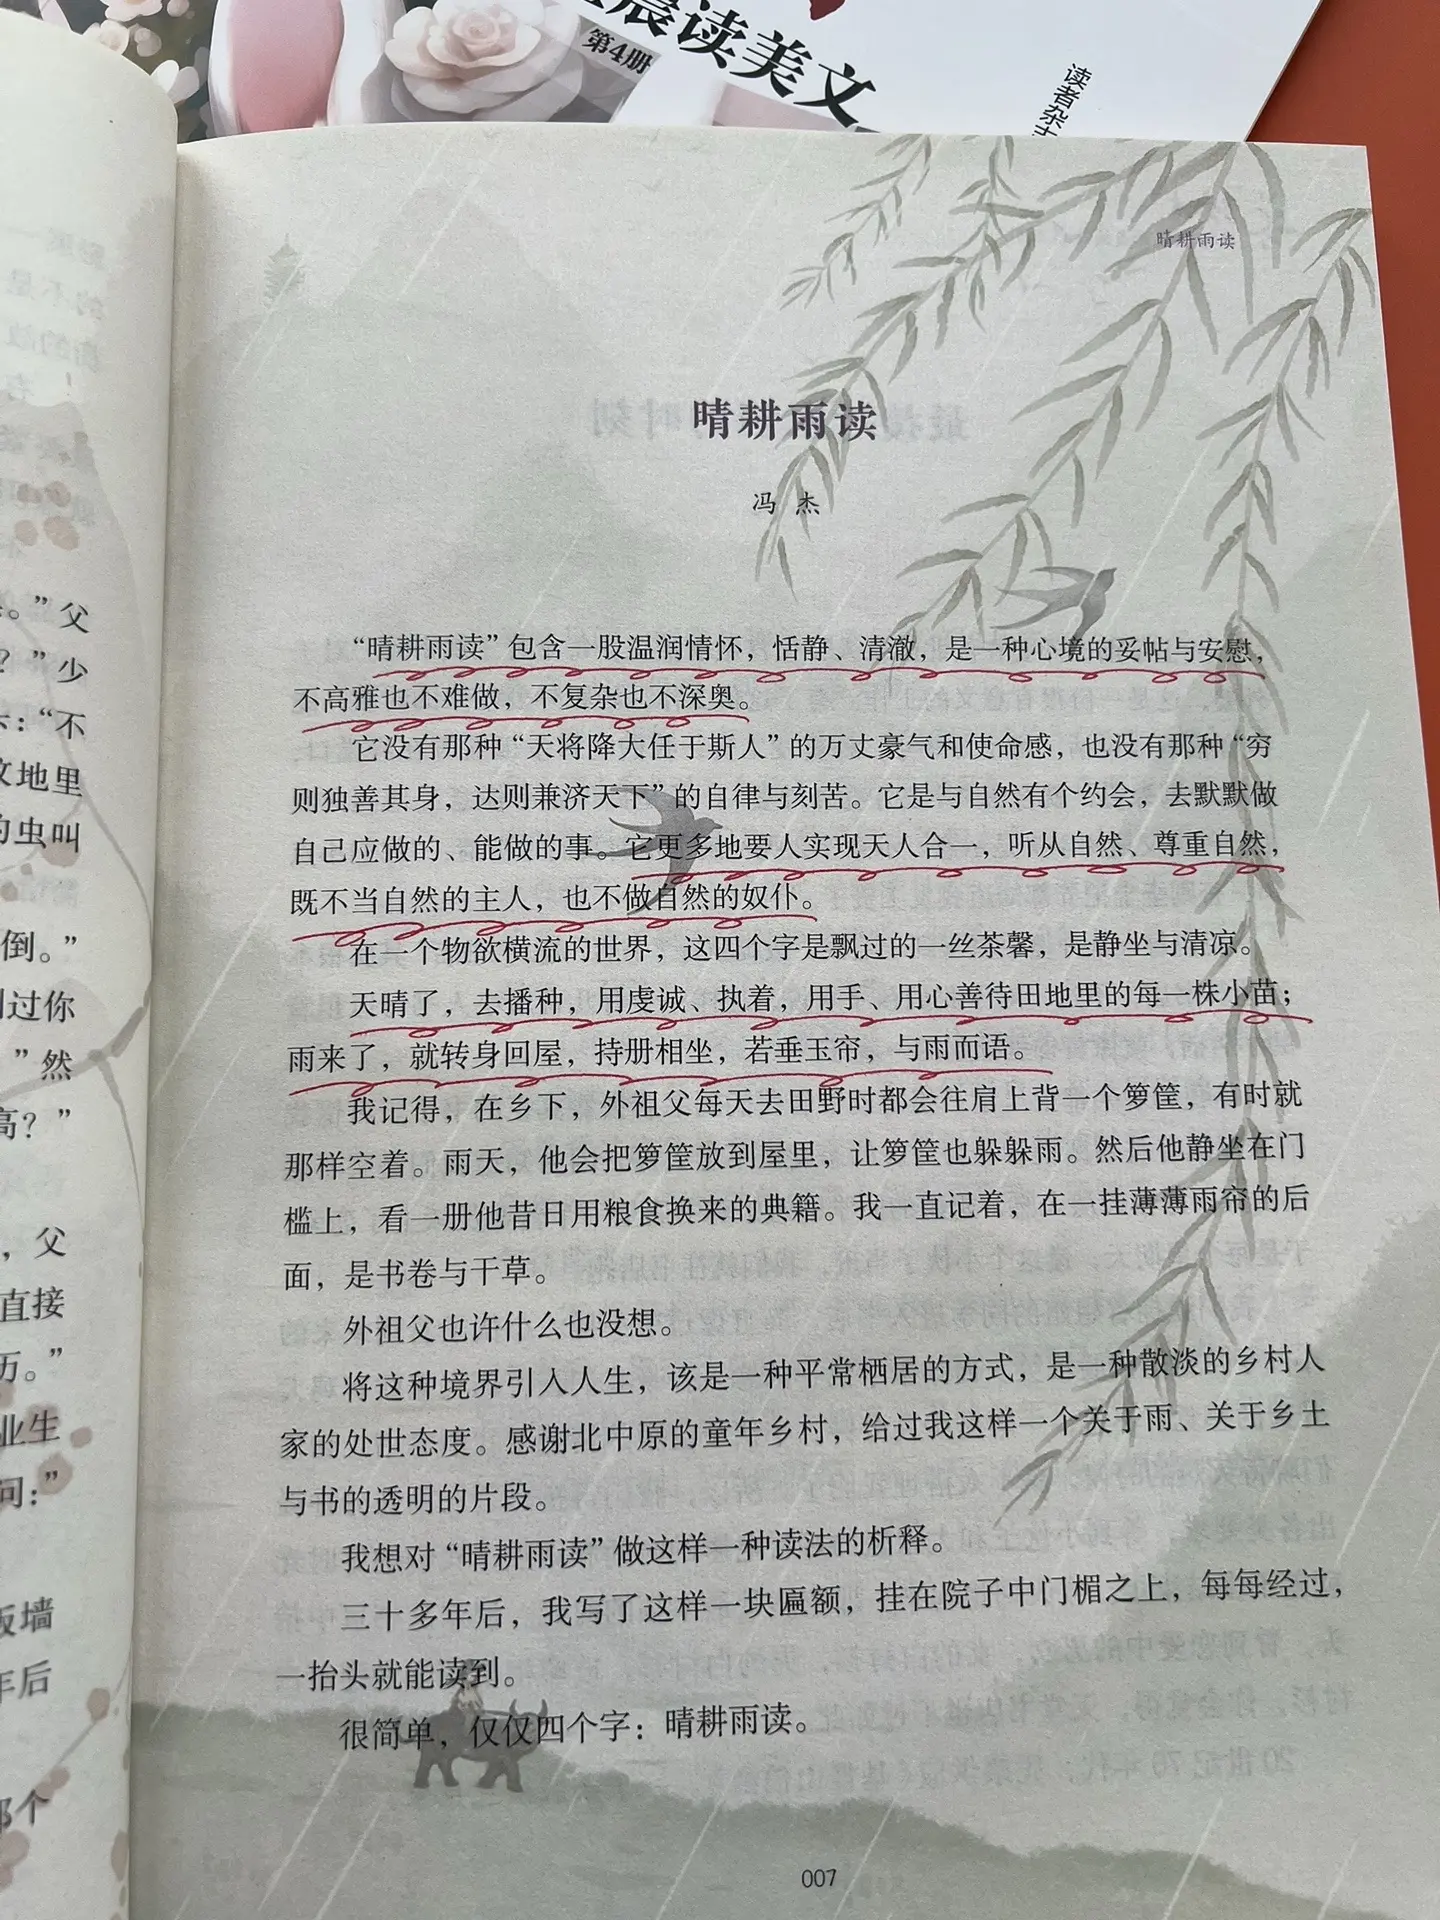 晨读美文
第4册
读者杂
晴耕雨读
晴耕雨读
冯 杰
“晴耕雨读”包含一股温润情怀，恬静、清澈，是一种心境的妥帖与安慰，
不高雅也不难做，不复杂也不深奥。
它没有那种“天将降大任于斯人”的万丈豪气和使命感，也没有那种“穷
则独善其身，达则兼济天下”的自律与刻苦。它是与自然有个约会，去默默做
自己应做的、能做的事。它更多地要人实现天人合一，听从自然、尊重自然，
既不当自然的主人，也不做自然的奴仆。
在一个物欲横流的世界，这四个字是飘过的一丝茶馨，是静坐与清凉。
天晴了，去播种，用虔诚、执着，用手、用心善待田地里的每一株小苗；
雨来了，就转身回屋，持册相坐，若垂玉帘，与雨而语。
我记得，在乡下，外祖父每天去田野时都会往肩上背一个箩筐，有时就
那样空着。雨天，他会把箩筐放到屋里，让箩筐也躲躲雨。然后他静坐在门
槛上，看一册他昔日用粮食换来的典籍。我一直记着，在一挂薄薄雨帘的后
面，是书卷与干草。
外祖父也许什么也没想。
将这种境界引入人生，该是一种平常栖居的方式，是一种散淡的乡村人
家的处世态度。感谢北中原的童年乡村，给过我这样一个关于雨、关于乡土
与书的透明的片段。
我想对“晴耕雨读”做这样一种读法的析释。
三十多年后，我写了这样一块匾额，挂在院子中门楣之上，每每经过，
一抬头就能读到。
很简单，仅仅四个字：晴耕雨读。
007
。”父
？”少
：“不
地里
虫叫
倒。”
过你
”然
高？”
，父
直接
历。”
业生
问：”
墙
年后
那个